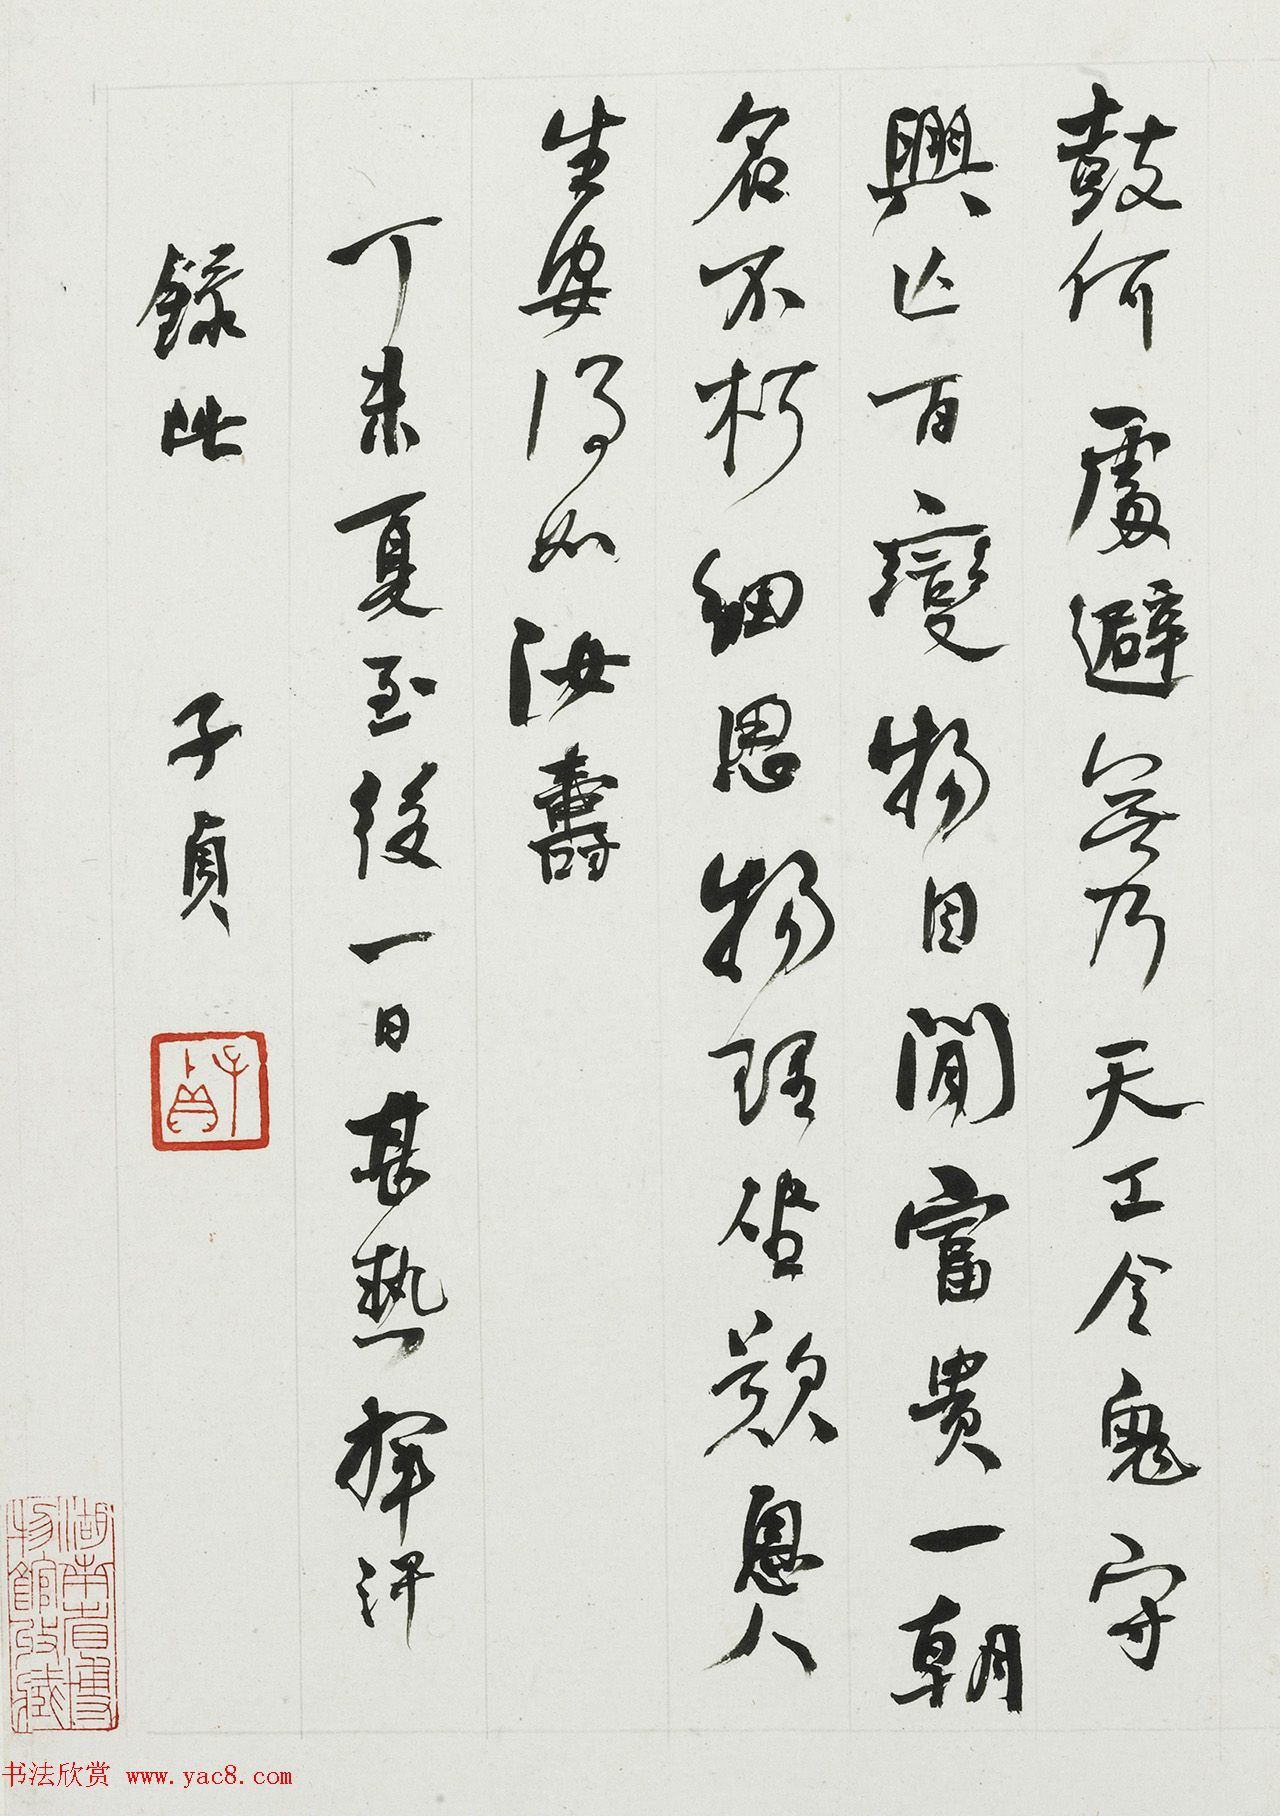 鼓何處避無乃天工令鬼守
興亡百變物自閒富貴一朝
名不朽細思物理坐歎息人
生安得如汝壽
丁未夏至後一日甚熱揮汗
錄此 子貞
子貞
湖南省博
物館收藏
书法欣赏 www.yac8.com